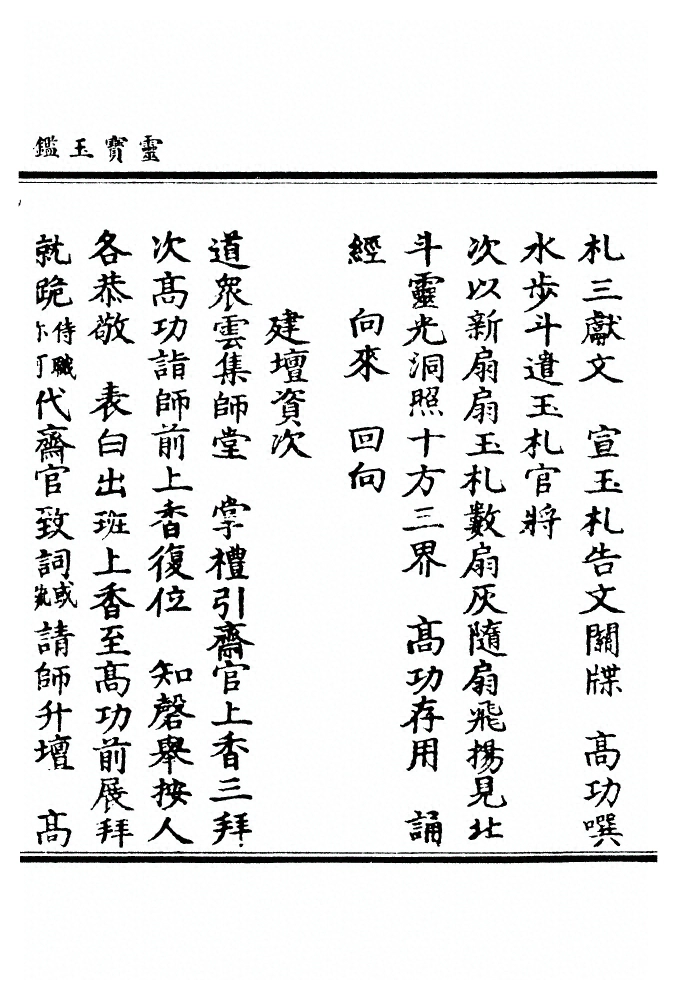 靈寶玉鑑
札三獻文　宣玉札告文關牒　高功噀
水步斗遣玉札官將
次以新扇扇玉札數扇灰隨扇飛揚見北
斗靈光洞照十方三界　高功存用　誦
經　向來　回向
建壇資次
道眾雲集師堂　掌禮引齋官上香三拜
次高功詣師前上香復位　知磬舉按人
各恭敬　表白出班上香至高功前展拜
就跪侍職亦可代齋官致詞或就請師升壇　高